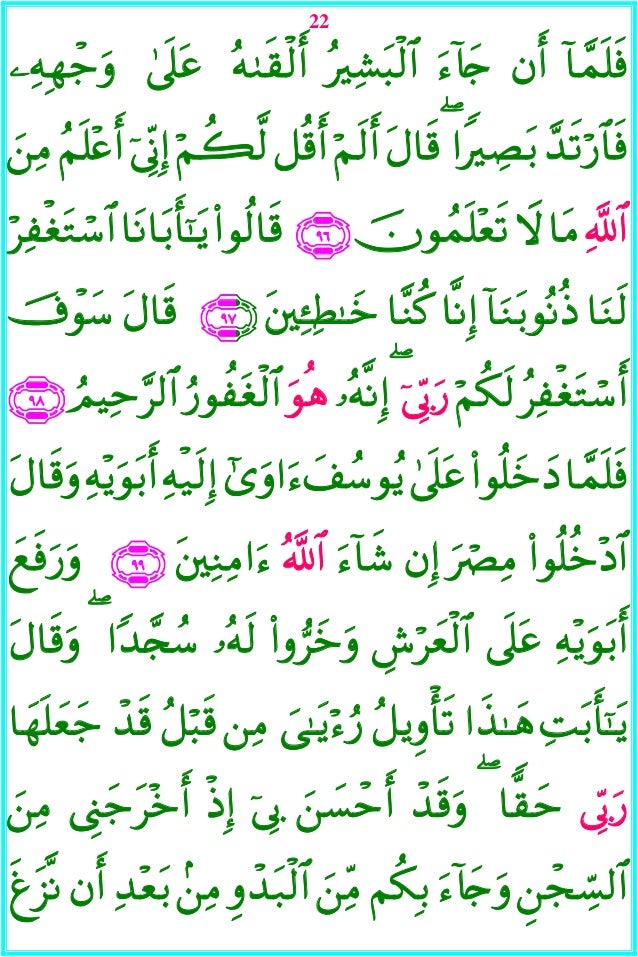 22
فَلَمَّآ أَن جَآءَ ٱلْبَشِيرُ أَلْقَىٰهُ عَلَىٰ وَجْهِهِۦ
فَٱرْتَدَّ بَصِيرًا ۖ قَالَ أَلَمْ أَقُل لَّكُمْ إِنِّىٓ أَعْلَمُ مِنَ
ٱللَّهِ مَا لَا تَعْلَمُونَ ٩٦ قَالُوا۟ يَٰٓأَبَانَا ٱسْتَغْفِرْ
لَنَا ذُنُوبَنَآ إِنَّا كُنَّا خَٰطِـِٔينَ ٩٧ قَالَ سَوْفَ
أَسْتَغْفِرُ لَكُمْ رَبِّىٓ ۖ إِنَّهُۥ هُوَ ٱلْغَفُورُ ٱلرَّحِيمُ ٩٨
فَلَمَّا دَخَلُوا۟ عَلَىٰ يُوسُفَ ءَاوَىٰٓ إِلَيْهِ أَبَوَيْهِ وَقَالَ
ٱدْخُلُوا۟ مِصْرَ إِن شَآءَ ٱللَّهُ ءَامِنِينَ ٩٩ وَرَفَعَ
أَبَوَيْهِ عَلَى ٱلْعَرْشِ وَخَرُّوا۟ لَهُۥ سُجَّدًا ۖ وَقَالَ
يَٰٓأَبَتِ هَٰذَا تَأْوِيلُ رُءْيَٰىَ مِن قَبْلُ قَدْ جَعَلَهَا
رَبِّى حَقًّا ۖ وَقَدْ أَحْسَنَ بِىٓ إِذْ أَخْرَجَنِى مِنَ
ٱلسِّجْنِ وَجَآءَ بِكُم مِّنَ ٱلْبَدْوِ مِنۢ بَعْدِ أَن نَّزَغَ